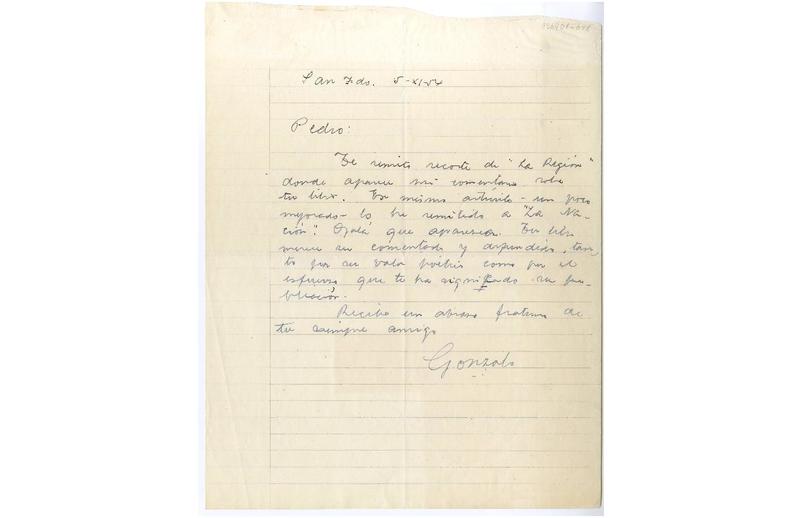 San Fdo. 5-XI-54
Pedro:
Te remito recorte de "La Región"
donde aparece mi comentario sobre
tu libro. Ese mismo artículo - un poco
mejorado - lo he remitido a "La Na-
ción". Ojalá que aparezca. Tu libro
merece ser comentado y difundido, tan-
to por su valor poético como por el
esfuerzo que te ha significado su pu-
blicación.
Recibe un abrazo fraterno de
tu siempre amigo
Gonzalo